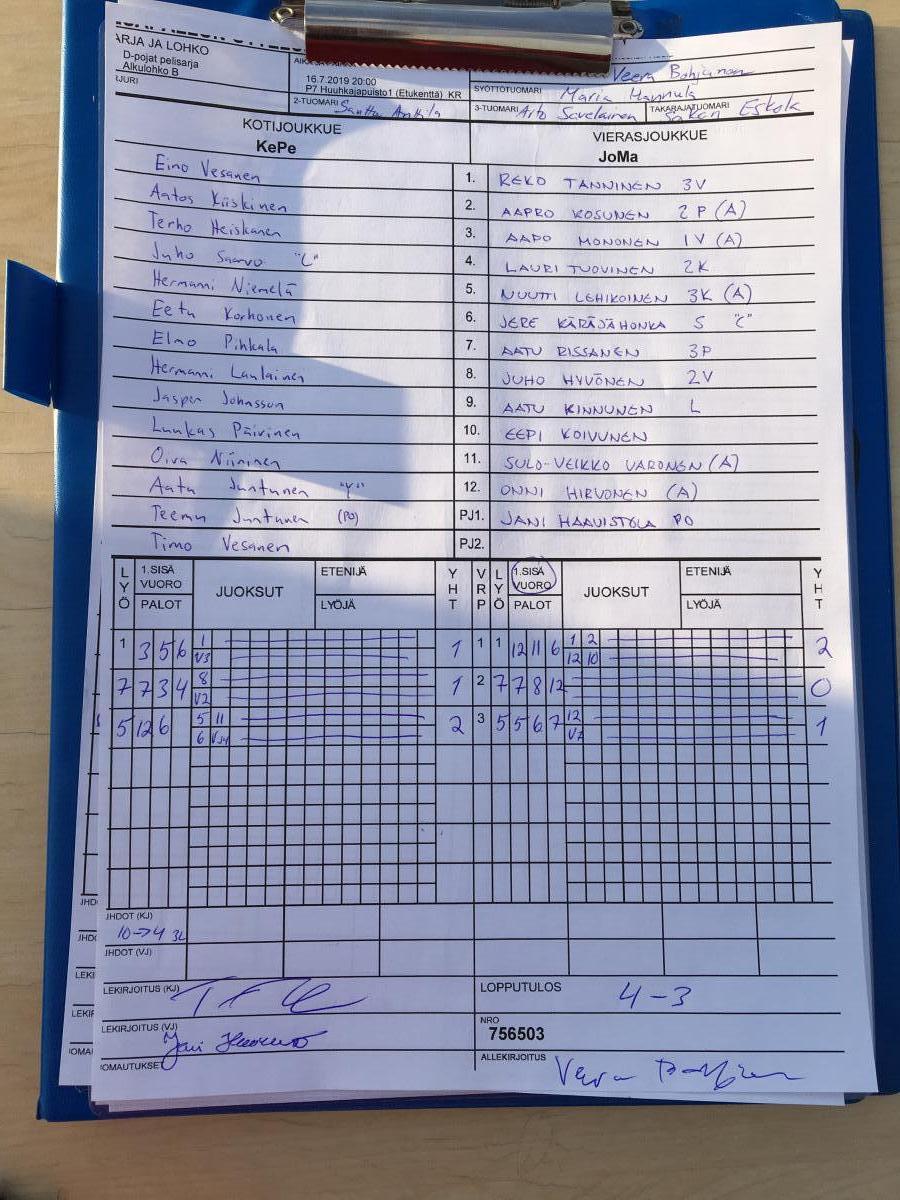 ARJA JA LOHKO
D-pojat pelisarja
Alkulohko B
16.7.2019 20:00
P7 Huuhkajapuisto1 (Etukenttä) KR
Veera
SYÖTTÖTUOMARI Maria Hannula
2-TUOMARI Santtu Anttila
3-TUOMARI Arto Savelainen
TAKARAJATUOMARI Eskola
KOTIJOUKKUE
KePe
VIERASJOUKKUE
JoMa
Eino Vesanen 1. REKO TANNINEN 3V
Aatos Kiiskinen 2. AAPRO KOSUNEN 2P (A)
Terho Heiskanen 3. AAPO MONONEN 1V (A)
Juho Saarvo "C" 4. LAURI TUOVINEN 2K
Hermanni Niemelä 5. NUUTTI LEHIKOINEN 3K (A)
Eetu Korhonen 6. JERE KÄRÄJÄHONKA S "C"
Elmo Pihkala 7. AATU RISSANEN 3P
Hermanni Laulainen 8. JUHO HYVÖNEN 2V
Jasper Johnsson 9. AATU KINNUNEN L
Luukas Päivinen 10. EEPI KOIVUNEN
Oiva Niininen 11. SULO-VEIKKO VARONEN (A)
Aatu Juntunen "Y" 12. ONNI HIRVONEN (A)
Teemu Juntunen (PO) PJ1. JANI HAAVISTOLA PO
Timo Vesanen PJ2.
LYÖ 1.SISÄ VUORO PALOT JUOKSUT ETENIJÄ LYÖJÄ YHT VRP LYÖ 1.SISÄ VUORO PALOT JUOKSUT ETENIJÄ LYÖJÄ YHT
1 3 5 6 1 V3 1 1 1 12 11 6 1 2 12 10 2
7 7 3 4 8 V2 1 2 7 7 8 12 0
5 12 6 5 11 6 2 3 5 5 6 7 12 V7 1
JHDOT (KJ)
10→4 3L
JHDOT (VJ)
LEKIRJOITUS (KJ)
LOPPUTULOS 4-3
LEKIRJOITUS (VJ)
NRO
756503
OMAUTUKSET
ALLEKIRJOITUS